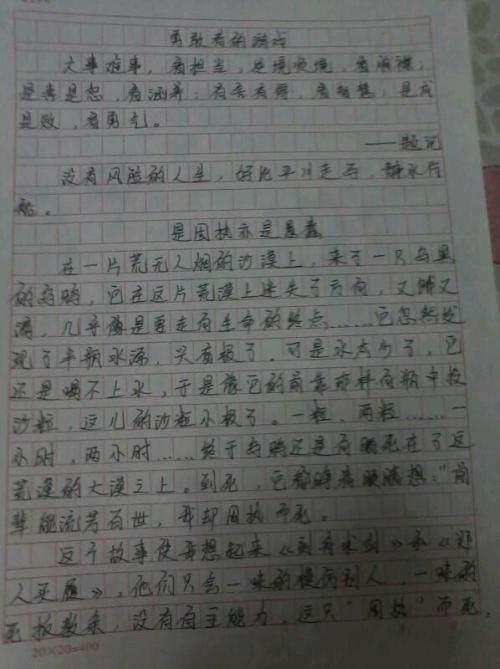 勇敢者的游戏
大事难事，看担当，逆境顺境，看胸襟；
是喜是怒，看涵养；有舍有得，看智慧；是成
是败，看勇气。
——题记
没有风险的人生，好比平川走马，静水行
船。
是固执亦是愚蠢
在一片荒无人烟的沙漠上，来了一只乌黑
的乌鸦，它在这片荒漠上迷失了方向，又饿又
渴，几乎像是要走向生命的终点……它忽然发
现了半瓶水源，兴奋极了，可是水太少了，它
还是喝不上水，于是像它的前辈那样向瓶中投
沙粒，这儿的沙粒小极了。一粒，两粒……一
小时，两小时……终于乌鸦还是渴死在了这
荒漠的大漠之上。到死，它都睁着眼睛想："前
辈能流芳百世，我却固执而死。
这个故事使我想起来《刻舟求剑》和《郑
人买履》，他们只会一味的模仿别人，一味的
死板教条，没有自主能力，这只"固执"而死，
20×20=400